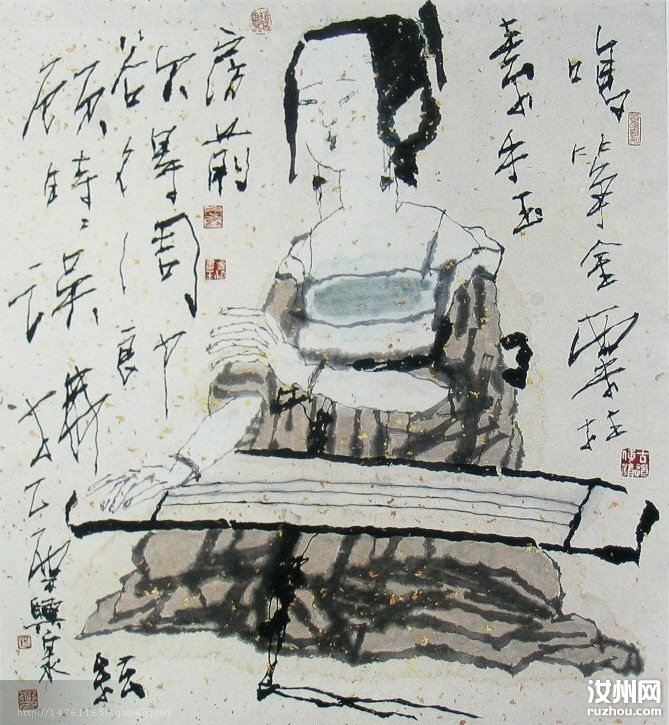 鳴筝金粟柱
素手玉
房前
欲得周郎
顧時時誤拂
弦
興泉
汝州网
ruzhou.com